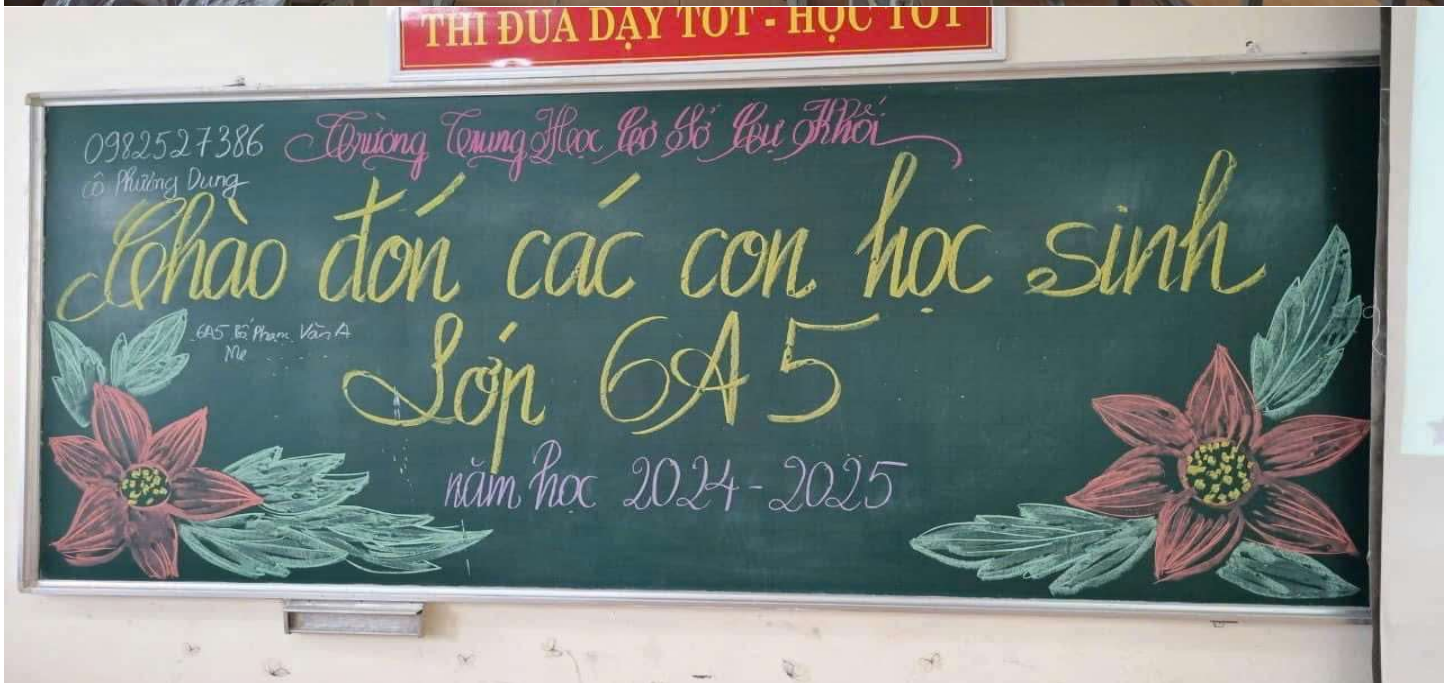 THI ĐUA DẠY TỐT - HỌC TỐT
0982527386
cô Phương Dung
Trường Trung Học Cơ Sở Cự Khối
Chào đón các con học sinh
6A5 Bố Phạm Văn A
Mẹ
Lớp 6A5
năm học 2024-2025